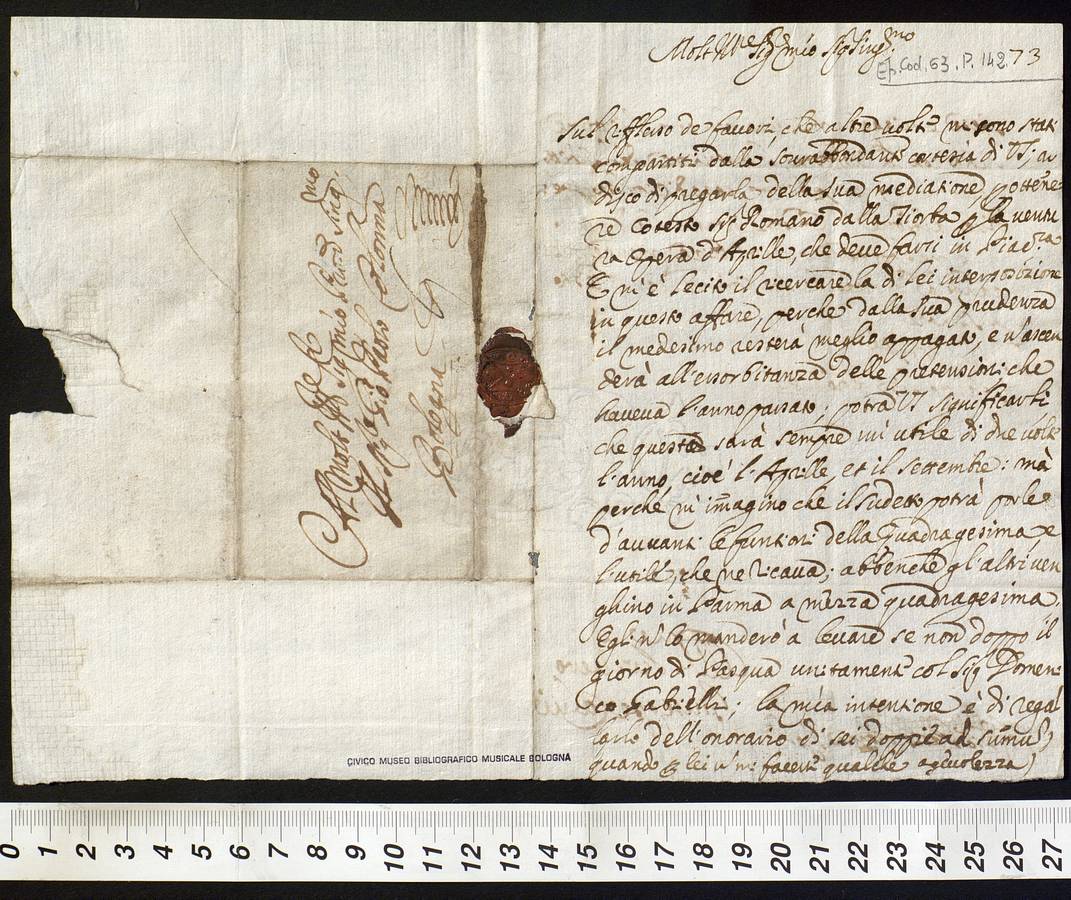 Molt Ill.re Sig.r mio Sig.r Sing.mo
Ep. Cod. 63. P. 142. 73
Sul riflesso de favori, che altre volte mi sono stati
compartiti dalla sourabbondante cortesia di VS; ar
disco di pregarla della sua mediatione, p ottene
re cotesto Sig.r Romano dalla Tiorba p la ventu
ra opera d'Aprile, che deve farsi in Piac.za
E mi è lecito il ricercare la di lei interposizione
in questo affare, perche dalla sua prudenza
il medesimo resterà meglio appagato, e n'ascen
derà all'essorbitanza delle pretensioni che
haveva l'anno passato; potrà VS significarli
che questa sarà sempre un utile di due volte
l'anno, cioè l'Aprile, et il settembre: mà
perché m'immagino che il sudetto potrà porle
d'avvanti le funtioni della Quadragesima e
l'utile, che ne ricava; abbenche gl'altri ven
ghino in Parma a mezza quadragesima,
Egli n' lo manderò a levare se non doppo il
giorno di Pasqua unitamente col Sig.r Domeni
co Gabrielli; la mia intentione è di regal
larlo dell'onorario di sei doppie ad summum
quando lei n' mi facesse qualche agevolezza
Al Molto Ill.re Sig.r mio P.ron Sing.mo
Il Sig.r Gio: Paolo Colonna
Bologna
CIVICO MUSEO BIBLIOGRAFICO MUSICALE BOLOGNA
0 1 2 3 4 5 6 7 8 9 10 11 12 13 14 15 16 17 18 19 20 21 22 23 24 25 26 27